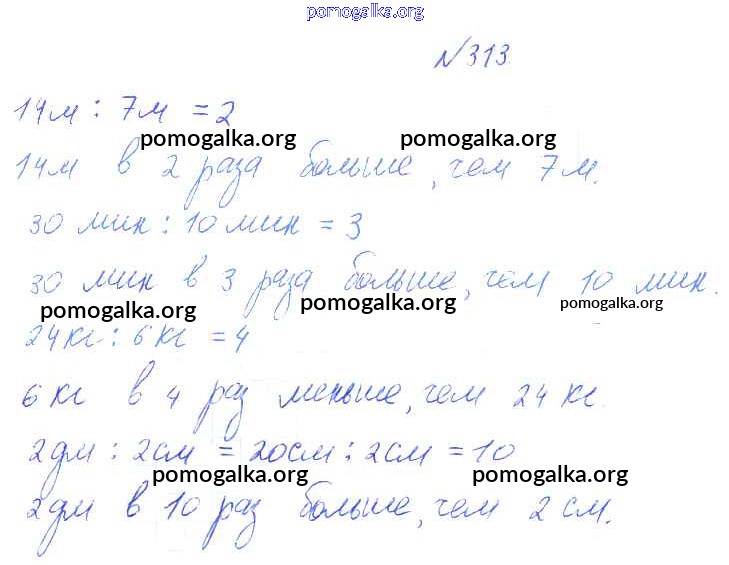 pomogalka.org
№313
14м : 7м = 2
pomogalka.org pomogalka.org
14м в 2 раза больше, чем 7м.
30 мин : 10 мин = 3
30 мин в 3 раза больше, чем 10 мин.
pomogalka.org pomogalka.org pomogalka.org
24кг : 6кг = 4
6кг в 4 раз меньше, чем 24 кг.
2дм : 2см = 20см : 2см = 10
pomogalka.org pomogalka.org
2дм в 10 раз больше, чем 2 см.